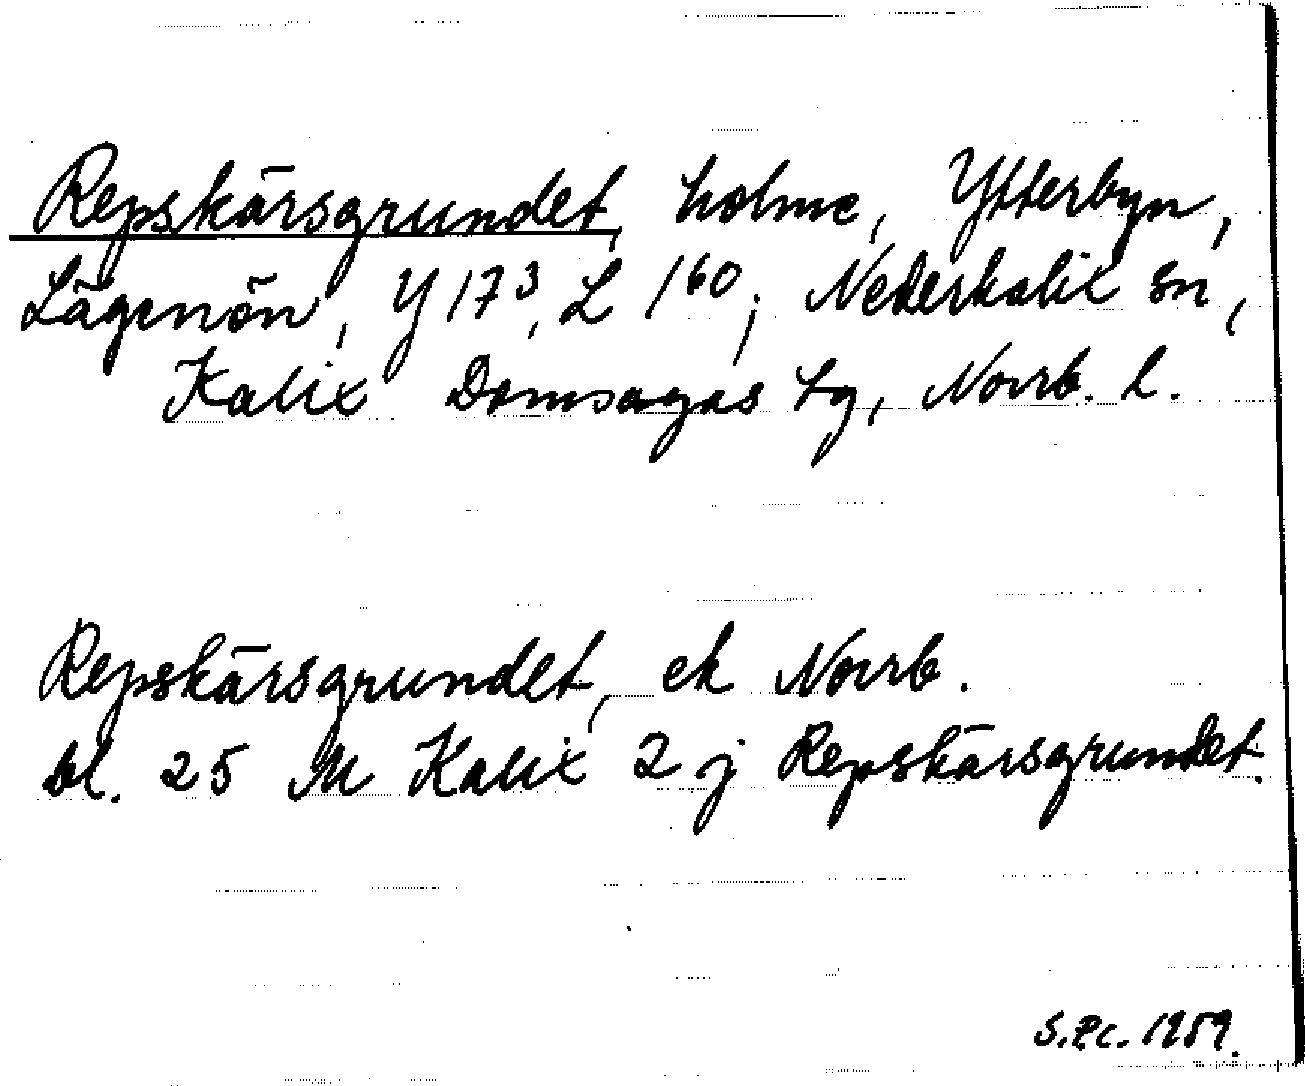 Repskärsgrundet, holme, Ytterbyn,
Lägenön, Y 173, L 160; Nederkalix sn,
Kalix Domsagas tg, Norrb. l.
Repskärsgrundet, ek Norrb.
bl. 25 M Kalix 2 j Repskärsgrundet.
1959.